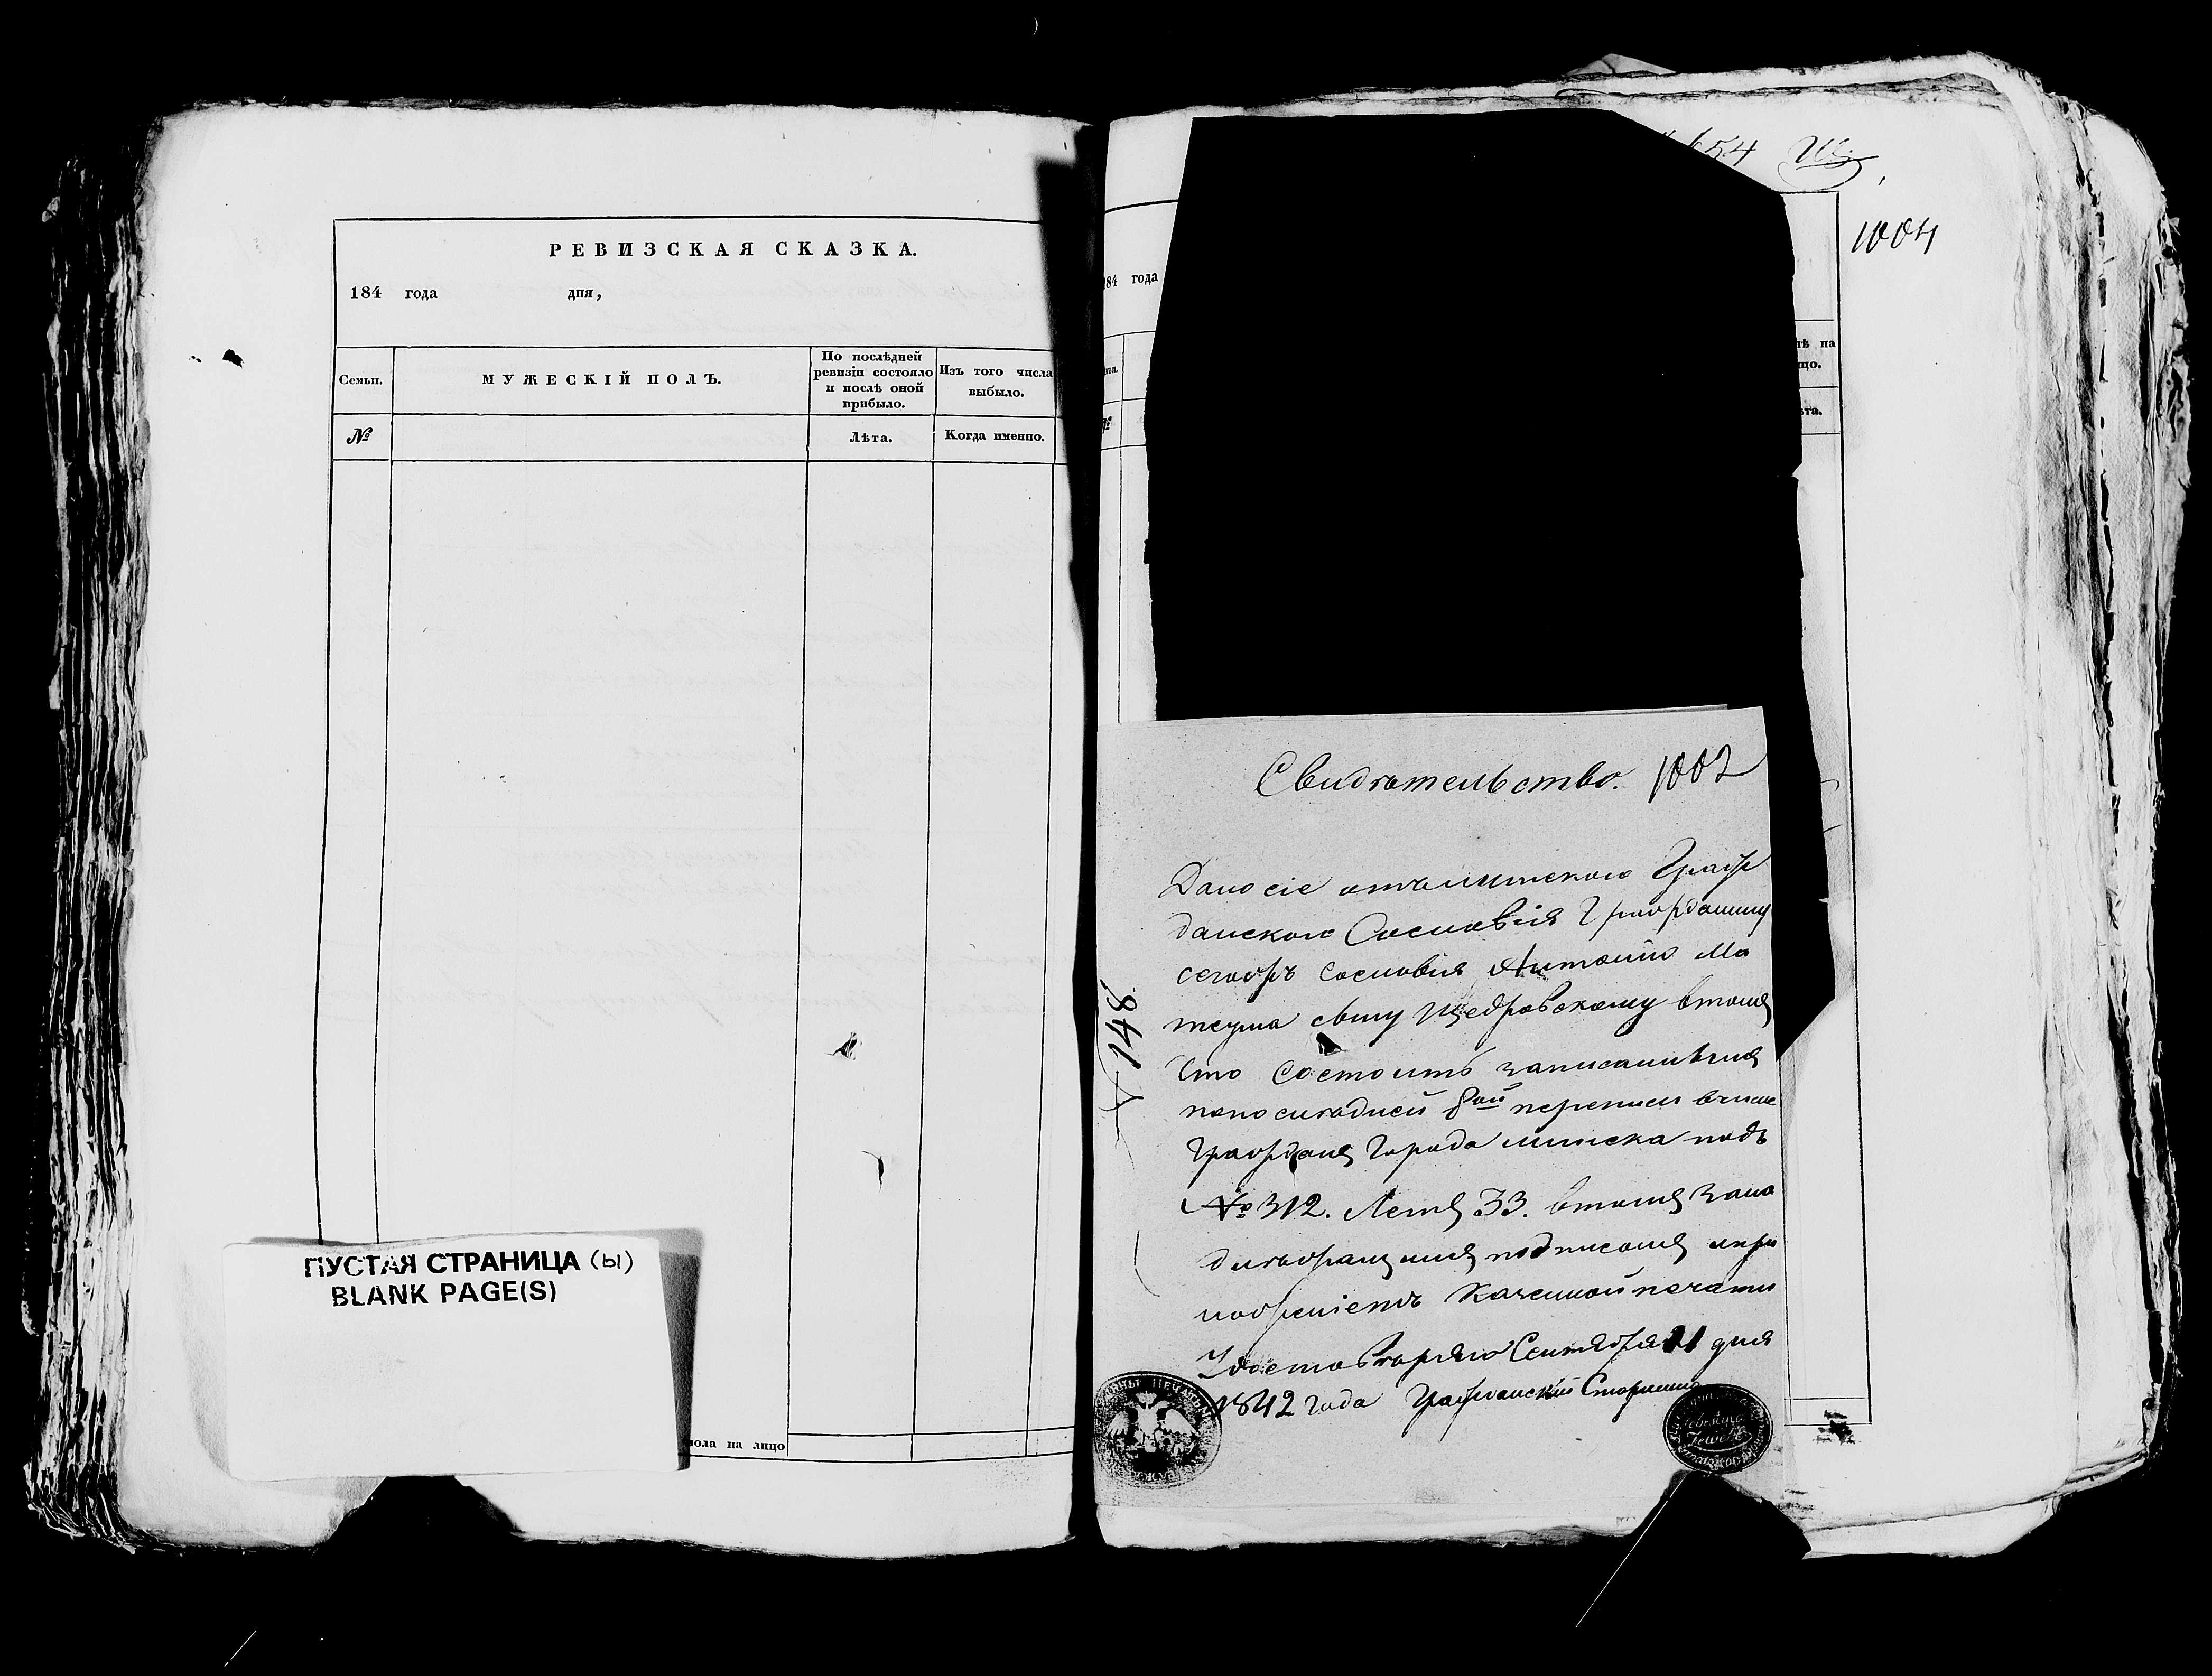 РЕВИЗСКАЯ СКАЗКА.
184 года дня,
Семьи.
МУЖЕСКІЙ ПОЛЪ.
По послѣдней
ревизіи состояло
и послѣ оной
прибыло.
Изъ того числа
выбыло.
№
Лѣта.
Когда именно.
ПУСТАЯ СТРАНИЦА (ы)
BLANK PAGE(S)
пола на лицо
654
1004
184 года
№
Свидѣтельство. 1002
Дано сіе отъ Минскаго Граж
данскаго Сословія Гражданину
сегожъ сословія Антонію Ма
теуша сыну Щедровскому втомъ
Что состоитъ записаннымъ
по последней 8ой переписи вчисле
Граждан Города Минска подъ
№ 312. Летъ 33. втомъ зана
длежащимъ подписомъ и при
ложеніемъ Казенной печати
Удостоверяю Сентября 11 дня
1842 года Гражданскій Старшина